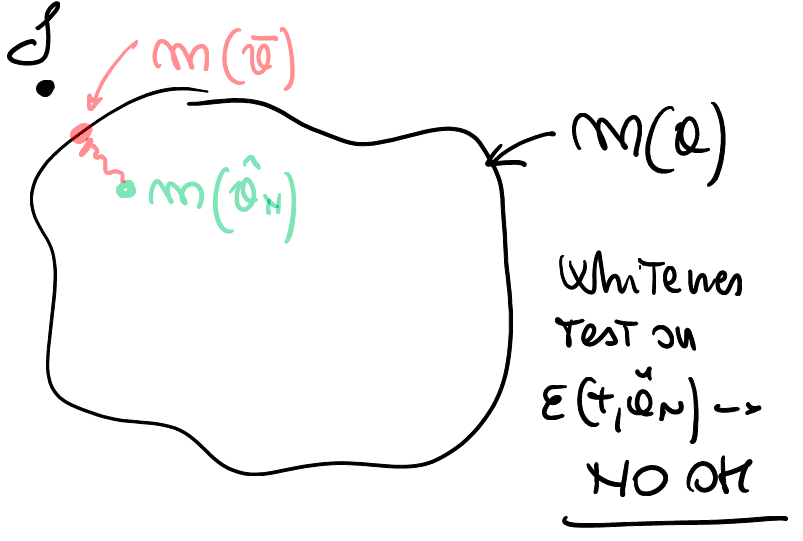 S
m(θ̄)
m(θ̂_N)
m(θ)
Whiteness
test on
ε(t, θ̂_N) →
NO OK